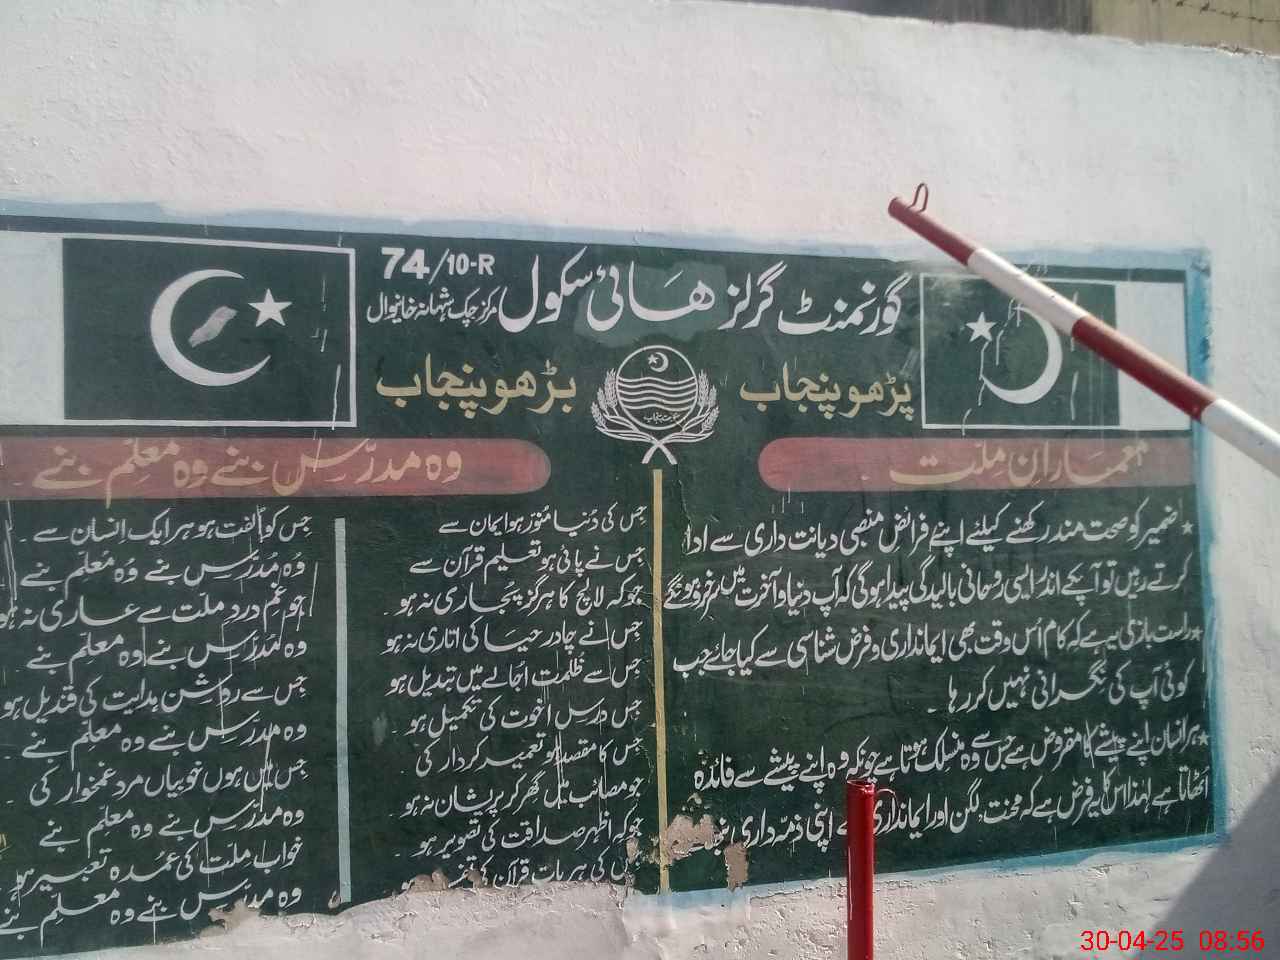 گورنمنٹ گرلز ھائی سکول 74/10-R
مرکز چک شہانہ خانیوال
پڑھو پنجاب
بڑھو پنجاب
حکومت پنجاب
معمارانِ مِلّت
ضمیر کو صحت مند رکھنے کیلئے اپنے فرائض منصبی دیانت داری سے ادا
کرتے رہیں تو آپکے اندر ایسی روحانی بالیدگی پیدا ہوگی کہ آپ دنیا و آخرت میں سرخرو ہونگے
راست بازی یہ ہے کہ کام اُس وقت بھی ایمانداری و فرض شناسی سے کیا جائے جب
کوئی آپ کی نِگرانی نہیں کر رہا ۔
ہر انسان اپنے پیشے کا مقروض ہے جس سے وہ منسلک ہوتا ہے چونکہ وہ اپنے پیشے سے فائدہ
اُٹھاتا ہے لہٰذا اس کا یہ فرض ہے کہ محنت، لگن اور ایمانداری اپنی ذمّہ داری
وہ مدرّس بنے وہ معلِم بنے
جس کی دُنیا مُنوّر ہو ایمان سے
جس نے پائی ہو تعلیم قرآن سے
جو کہ لالچ کا ہرگز پُجاری نہ ہو ۔
جس نے چادر حیا کی اتاری نہ ہو
جس سے ظُلمت اُجالے میں تبدیل ہو
جس درسِ اخوت کی تکمیل ہو ۔
جس کا مقصد ہو تعمیر کردار کی ۔
جو مصائب میں گھر کر پریشان نہ ہو ۔
جو کہ اظہر صداقت کی تصویر ہو ۔
کی ہر بات قرآن کی ہو
جس کو اُلفت ہو ہر ایک انسان سے ۔
وُہ مُدرّس بنے وُہ مُعلِم بنے
جو غمِ دردِ ملّت سے عاری نہ ہو
وہ مُدرّس بنے وہ معلِم بنے
جس سے روشن ہدایت کی قندیل ہو
وہ مدرّس بنے وہ معلِم بنے ۔
جس میں ہوں خوبیاں مرد غمخوار کی ۔
وہ مدرّس بنے وہ معلِم بنے
خواب ملّت کی عُمدہ تعبیر ہو
وہ مدرّس بنے وہ معلِم بنے
30-04-25 08:56